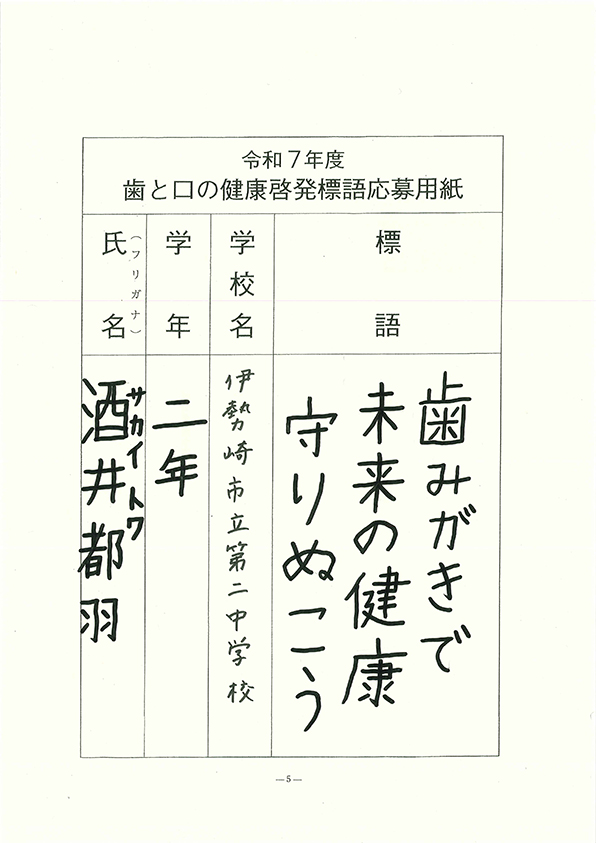 令和7年度
歯と口の健康啓発標語応募用紙
標語
歯みがきで
未来の健康
守りぬこう
学校名
伊勢崎市立第二中学校
学年
二年
氏名
(フリガナ)
サカイトワ
酒井都羽
—5—